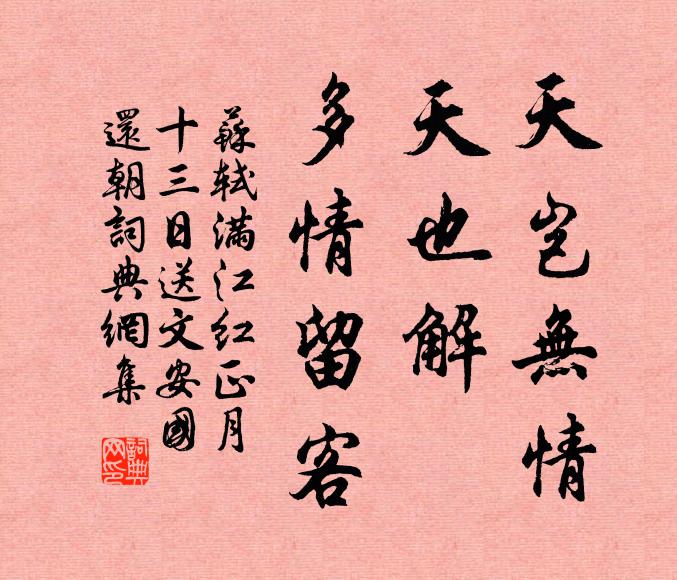 天豈無情
天也解
多情留客
蘇軾滿江紅正月
十三日送文安國
還朝詞典網集
詞典網印